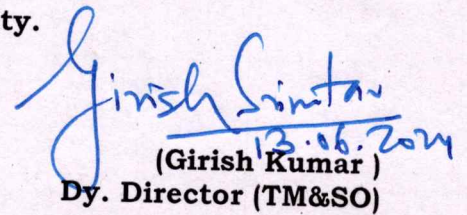 ty.
Girish
13.06.2024
(Girish Kumar )
Dy. Director (TM&SO)